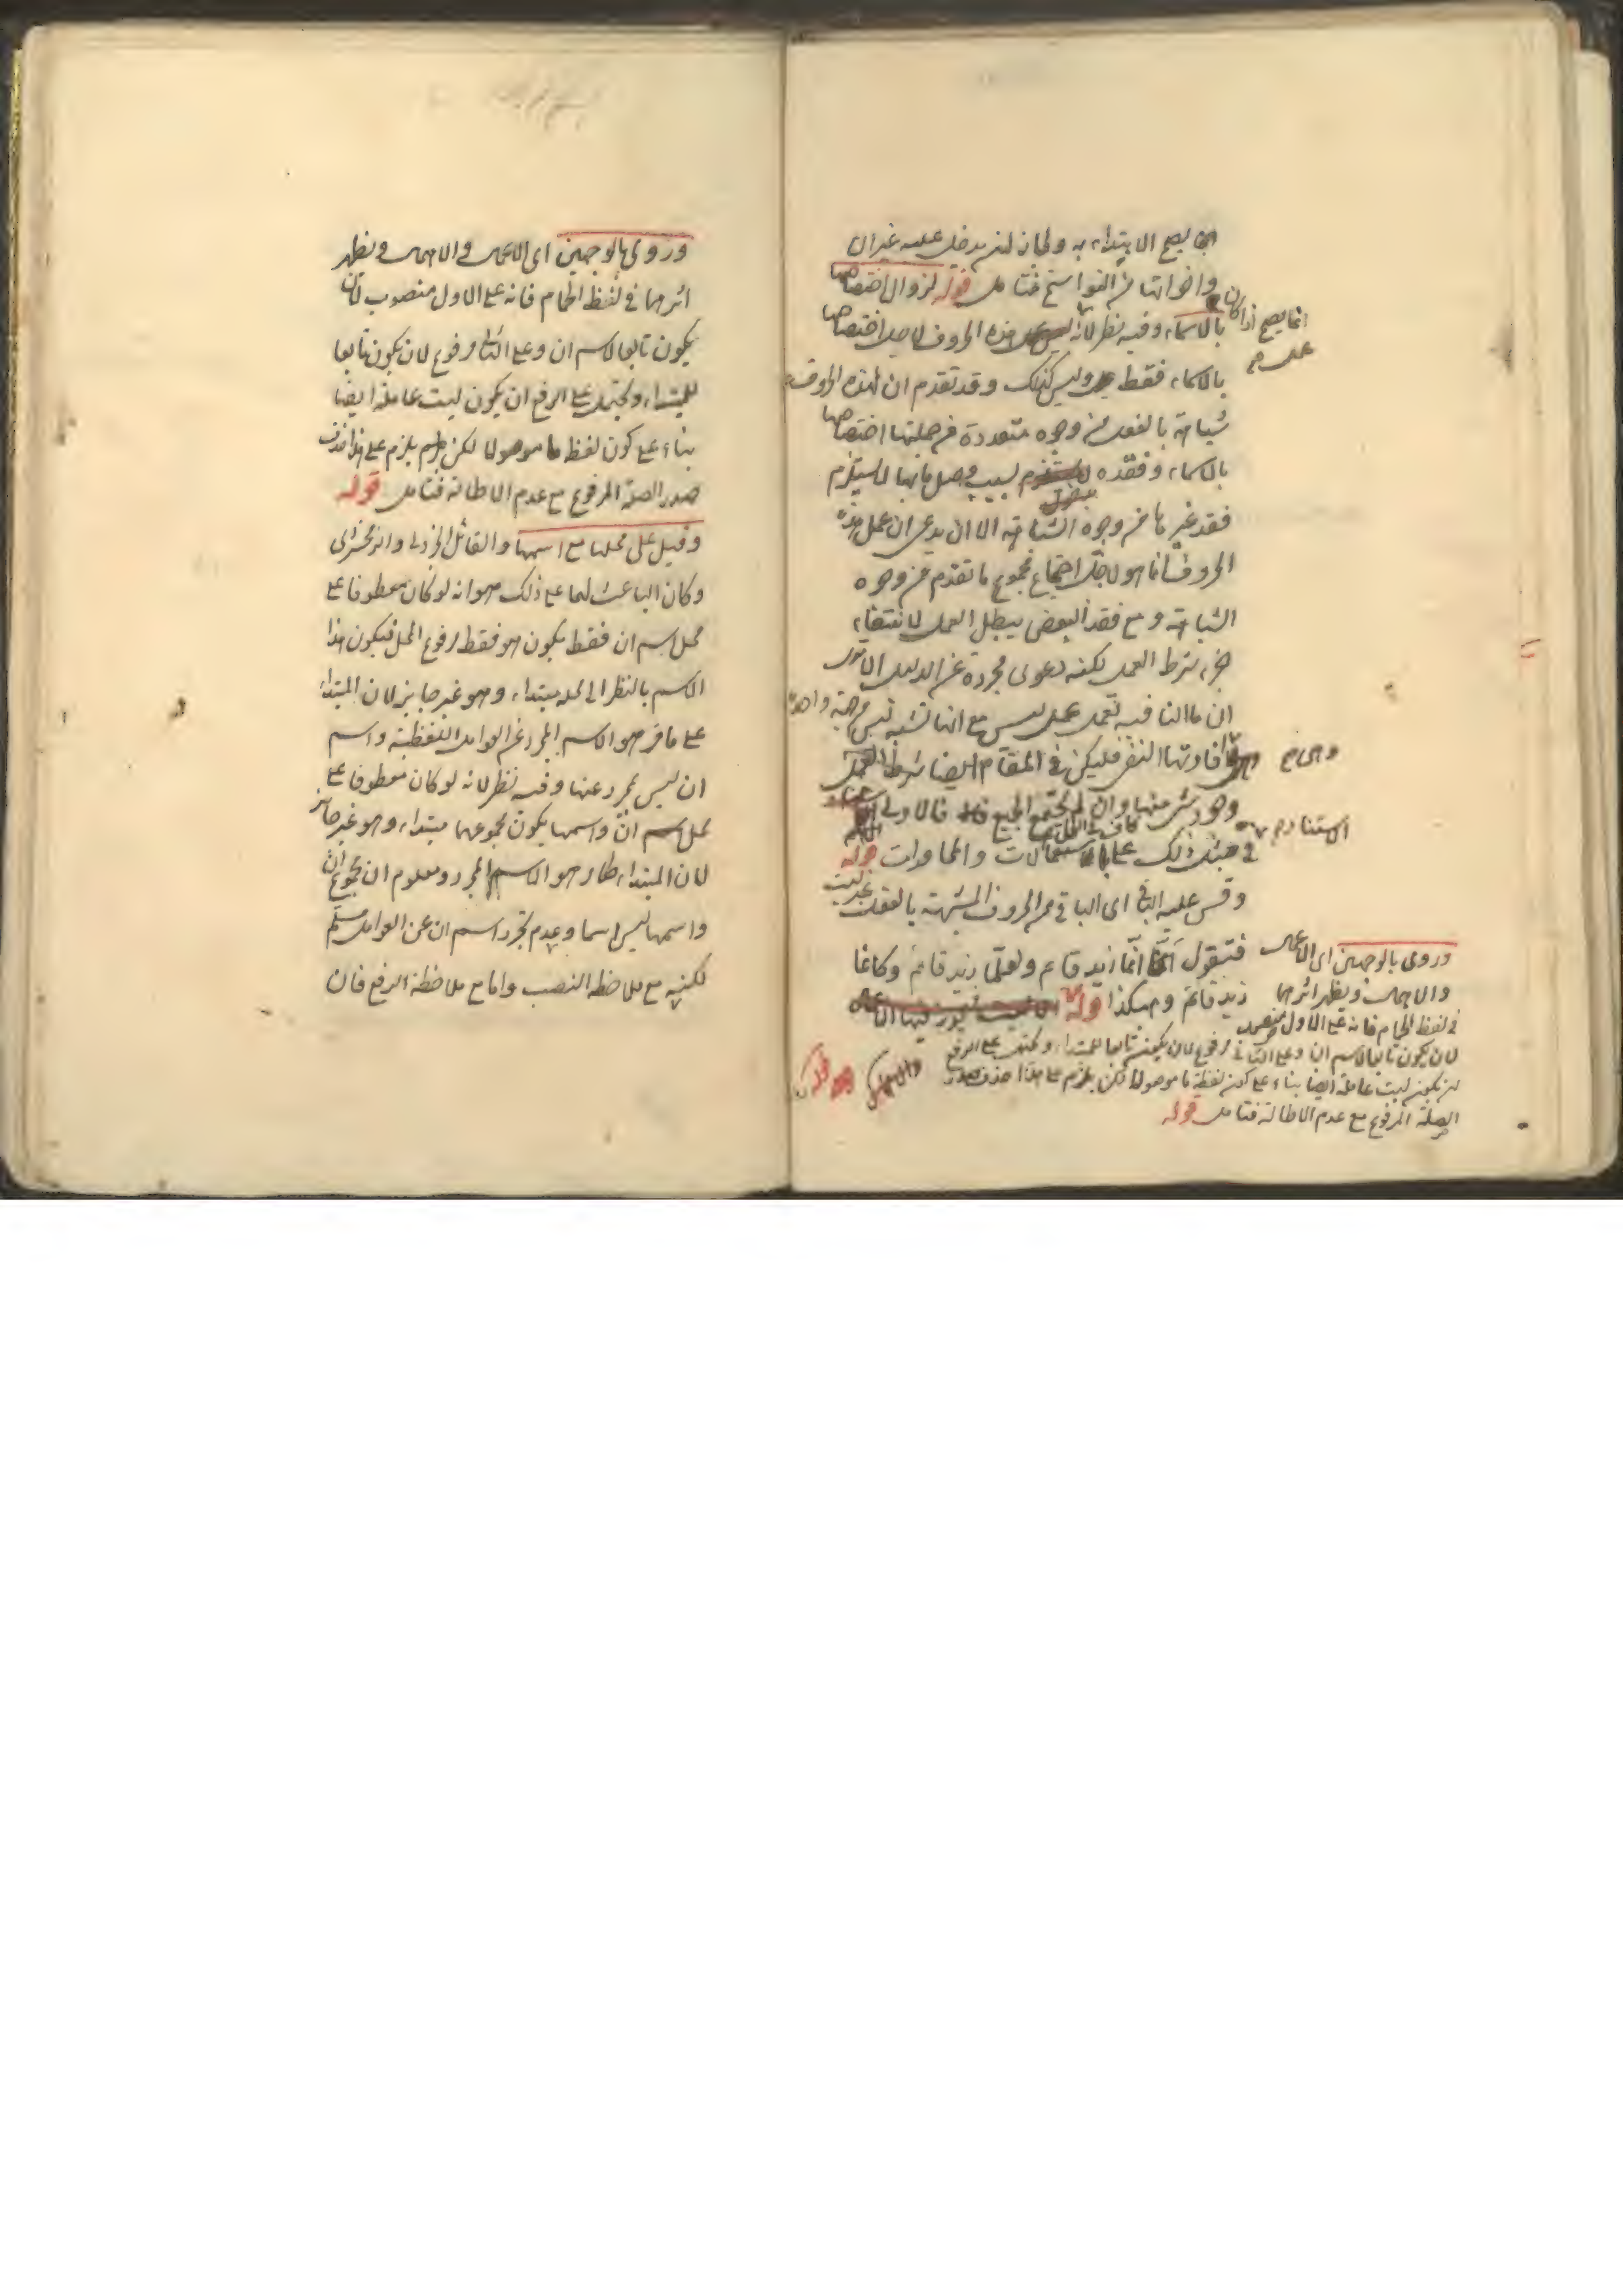 يصح الابتداء به ولجاز ان يدخل عليه غير ان
واخواتها من النواسخ فتامل قوله لزوال اختصاصها
بالاسماء وفيه نظر لانه هذه الحروف لاجل اختصاصها
انما يصح اذا كان
عمل صح
بالاسماء فقط وليس كذلك وقد تقدم ان لهذه الحروف
شباهة بالفعل من وجوه متعددة من جملتها اختصاصها
بالاسماء وفقده بسبب وصل ما بها لا يستلزم
فقد غيرها من وجوه الشباهة الا ان يدعى ان عمل هذه
الحروف انما هو لاجل اجتماع مجموع ما تقدم من وجوه
الشباهة ومع فقد البعض يبطل العمل لانتفاء
جزء شرط العمل لكنه دعوى مجردة عن الدليل الا ترى
ان ما النافيه تعمل عمل ليس مع انها تشبه ليس من جهة واحدة
وهى صح افادتها النفى فليكن فى المقام ايضا شرط العمل
وجود شىء منها وان لم يجتمع الجميع فالاولى
الاستناد صح
فى مثل ذلك على الاستعمالات والمحاورات قوله
وقس عليه الباقى اى الباقى من الحروف المشبهة بالفعل
غير ليت
فتقول انما زيد قائم ولعلما زيد قائم وكانما
زيد قائم وهكذا قوله
وروى بالوجهين اى الاعمال
والاهمال ويظهر اثرهما
فى لفظ الحمام فانه على الاول منصوب
لان يكون تابعا لاسم ان وعلى الثانى مرفوع لان يكون تابعا للمبتداء ويحتمل على الرفع
ان يكون ليت عاملة ايضا بناء على كون لفظة ما موصولا لكن يلزم على هذا حذف صدر
الصلة المرفوع مع عدم الاطالة فتامل قوله
وروى بالوجهين اى الاعمال والاهمال ويظهر
اثرهما فى لفظ الحمام فانه على الاول منصوب لان
يكون تابعا لاسم ان وعلى الثانى مرفوع لان يكون تابعا
للمبتداء ويحتمل على الرفع ان يكون ليت عاملة ايضا
بناء على كون لفظ ما موصولا لكن يلزم على هذا حذف
صدر الصلة المرفوع مع عدم الاطالة فتامل قوله
وقيل على محلها مع اسمها والقائل الجزولى والزمخشرى
وكان الباعث لهما على ذلك هو انه لو كان معطوفا على
محل اسم ان فقط يكون هو فقط مرفوع المحل فيكون هذا
الاسم بالنظر الى محله مبتداء وهو غير جايز لان المبتداء
على ما قر هو الاسم المجرد عن العوامل اللفظية واسم
ان ليس بمجرد عنها وفيه نظر لانه لو كان معطوفا على
محل اسم ان واسمها يكون مجموعهما مبتداء وهو غير جائز
لان المبتداء هو الاسم المجرد ومعلوم ان مجموع ان
واسمها ليس اسما وعدم تجرد اسم ان عن العوامل مسلم
لكنه مع ملاحظة النصب واما مع ملاحظة الرفع فان